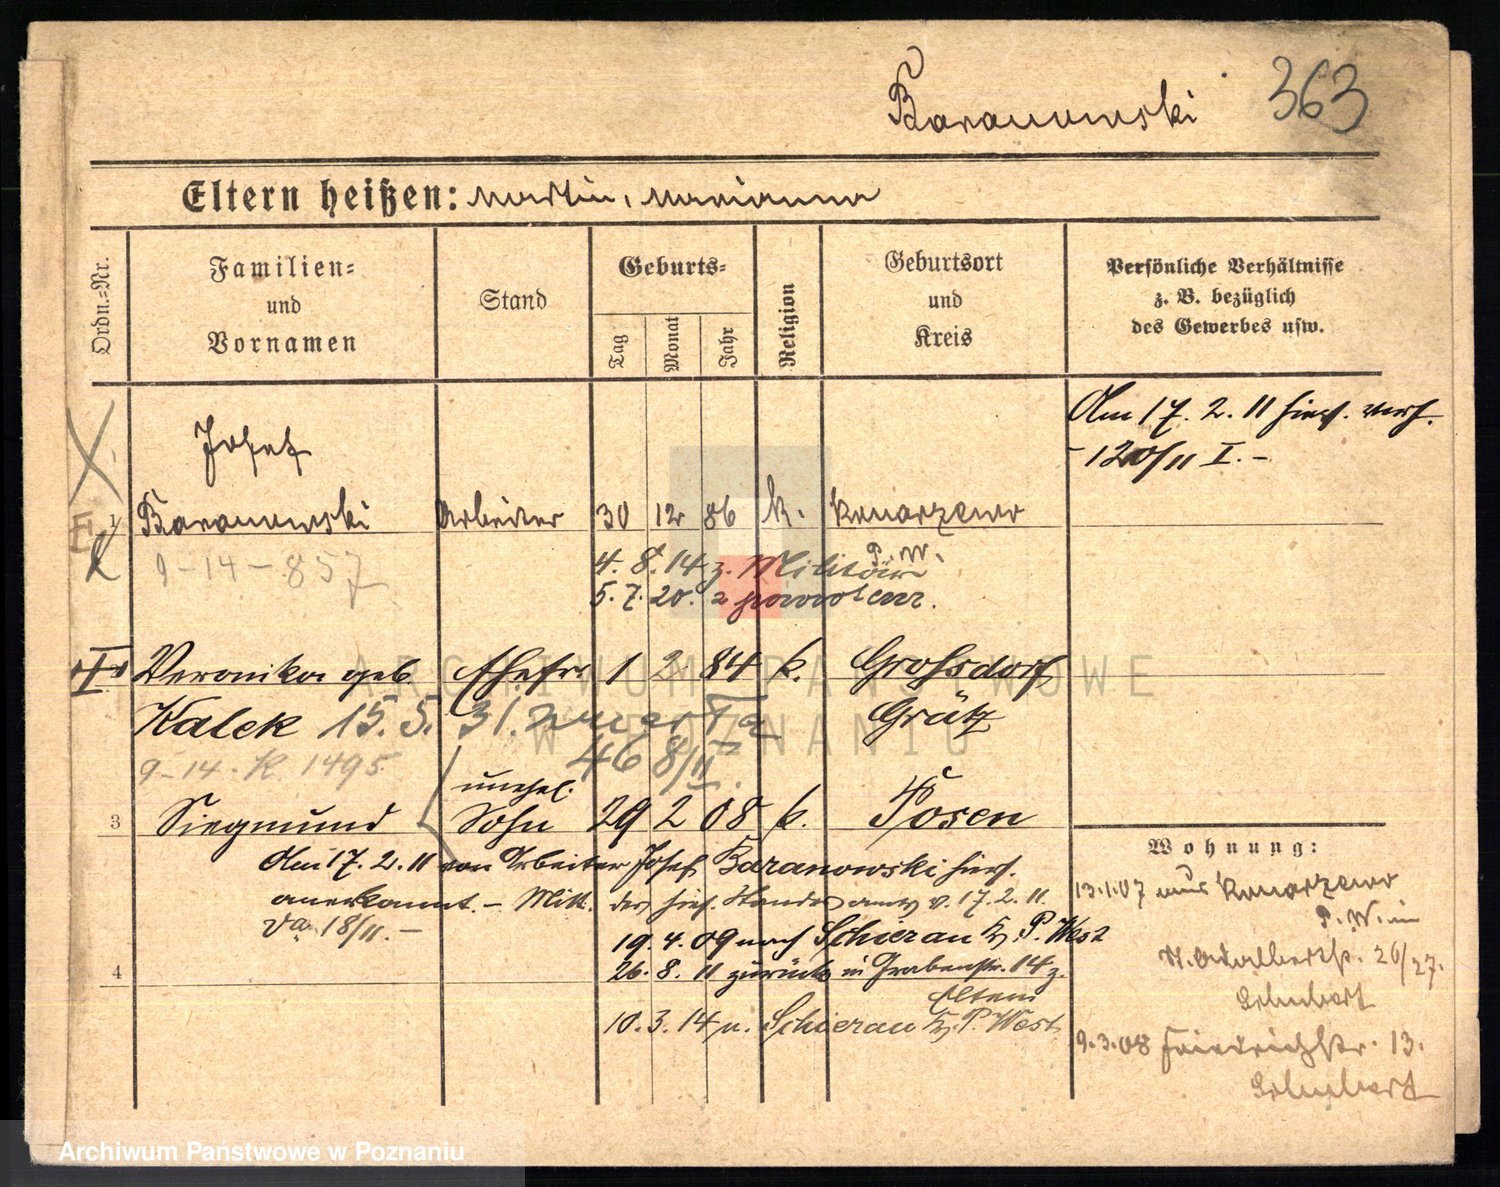 Baranowski 363
Eltern heißen: Martin, Marianna
Ordn.=Nr.
Familien=
und
Vornamen
Stand
Geburts=
Tag
Monat
Jahr
Religion
Geburtsort
und
Kreis
Persönliche Verhältnisse
z. B. bezüglich
des Gewerbes usw.
Am 17. 2. 11 hier. verh.
- 120/11 I. -
Josef
1 Baranowski Arbeiter 30 12 86 k. Konarzewo
P. W.
9-14-857
4. 8. 14 z. Militär
5. 7. 20. z powrotem.
Veronika geb. Ehefr. 1 2 84 k. Großdorf
Kalek 15. 5. 31. Grätz
46 8/II.
9-14. K 1495
unehel.
3 Siegmund Sohn 29 2 08 k. Posen
Am 17. 2. 11 von Arbeiter Josef Baranowski hier.
anerkannt. - Mitt. des hies. Standesamts v. 17. 2. 11.
Va 18/11. -
19. 4. 09 nach Schieran Kr. P. West
4 26. 8. 11 zurück in Grabenstr. 14 z.
Eltern
10. 3. 14 n. Schieran Kr. P. West
Wohnung:
13. 1. 07 aus Konarzewo
P. W. in
St. Adalbertstr. 26/27.
9. 3. 08 Friedrichstr. 13.
ARCHIWUM PAŃSTWOWE
W POZNANIU
Archiwum Państwowe w Poznaniu